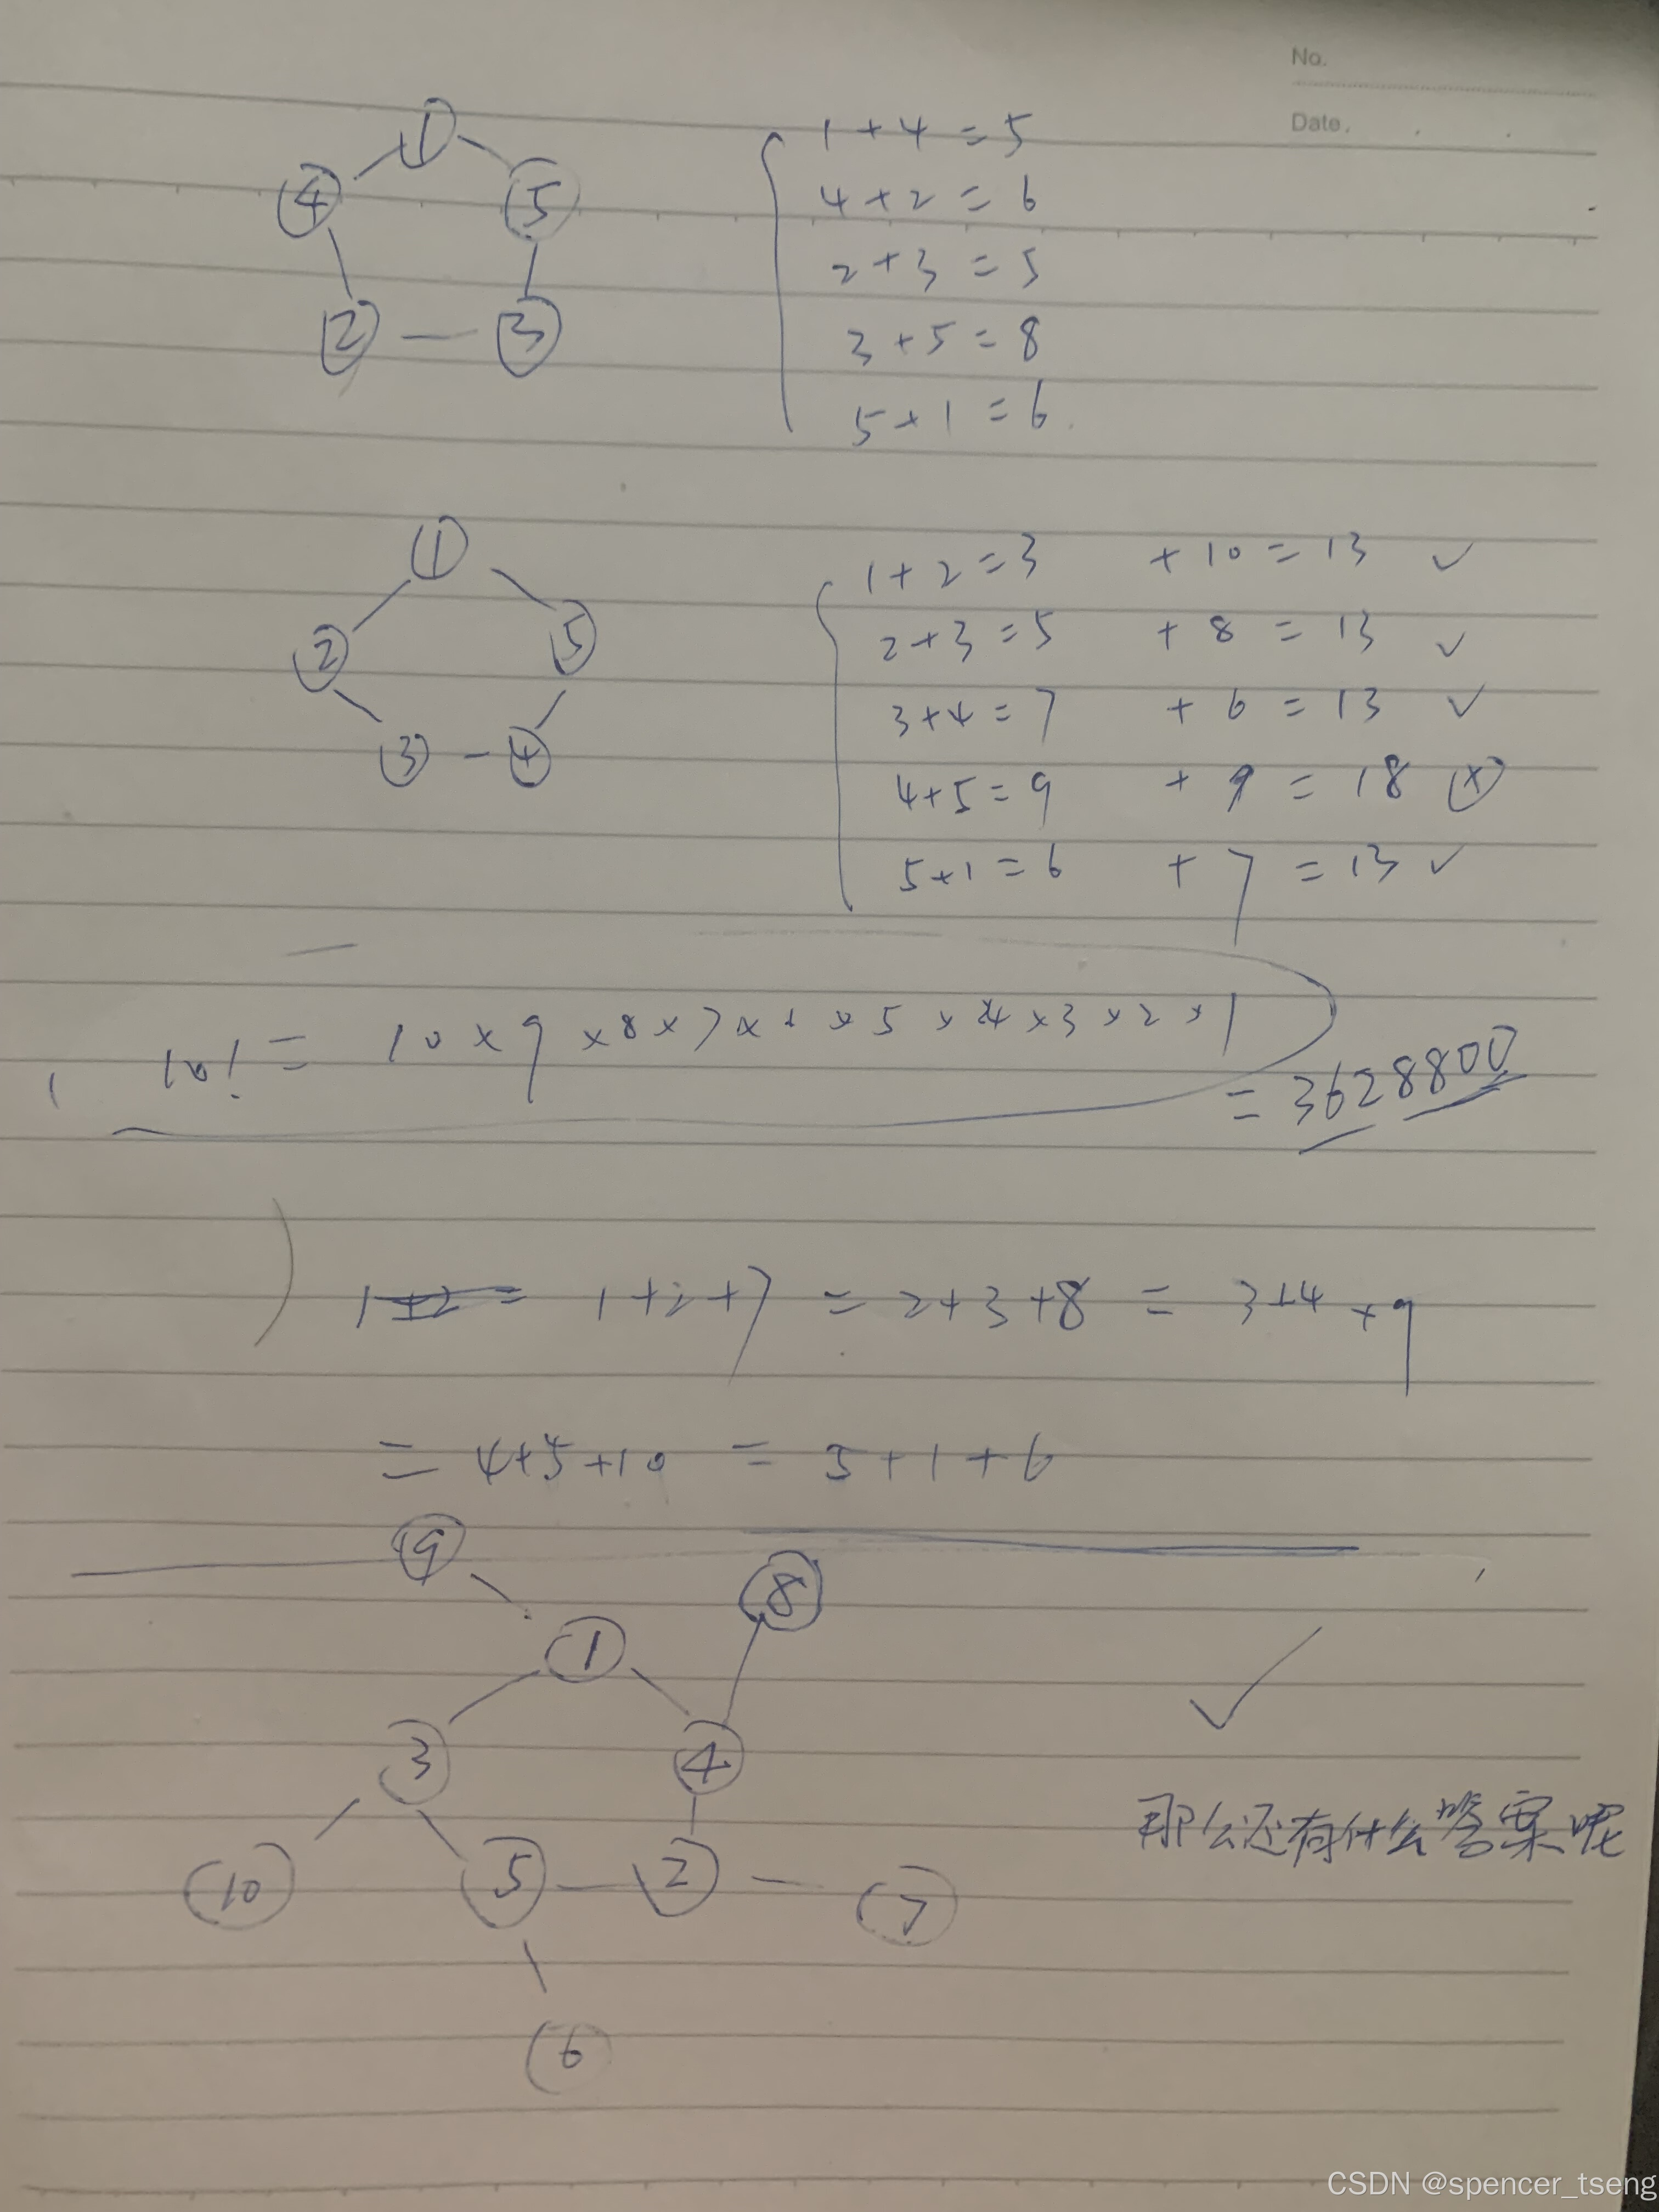 No.
Date.
① 
④ ⑤
② — ③
1 + 4 = 5
4 + 2 = 6
2 + 3 = 5
3 + 5 = 8
5 + 1 = 6
①
② ⑤
③ - ④
1 + 2 = 3 + 10 = 13 ✓
2 + 3 = 5 + 8 = 13 ✓
3 + 4 = 7 + 6 = 13 ✓
4 + 5 = 9 + 9 = 18 ⓧ
5 + 1 = 6 + 7 = 13 ✓
10! = 10 × 9 × 8 × 7 × × 5 × 4 × 3 × 2 × 1
= 3628800
1+2 = 1+2+7 = 2+3+8 = 3+4+9
= 4+5+10 = 5+1+6
⑨ ⑧
①
③ ④
⑩ ⑤ — ② — ⑦
⑥
✓
那么还有什么答案呢
CSDN @spencer_tseng